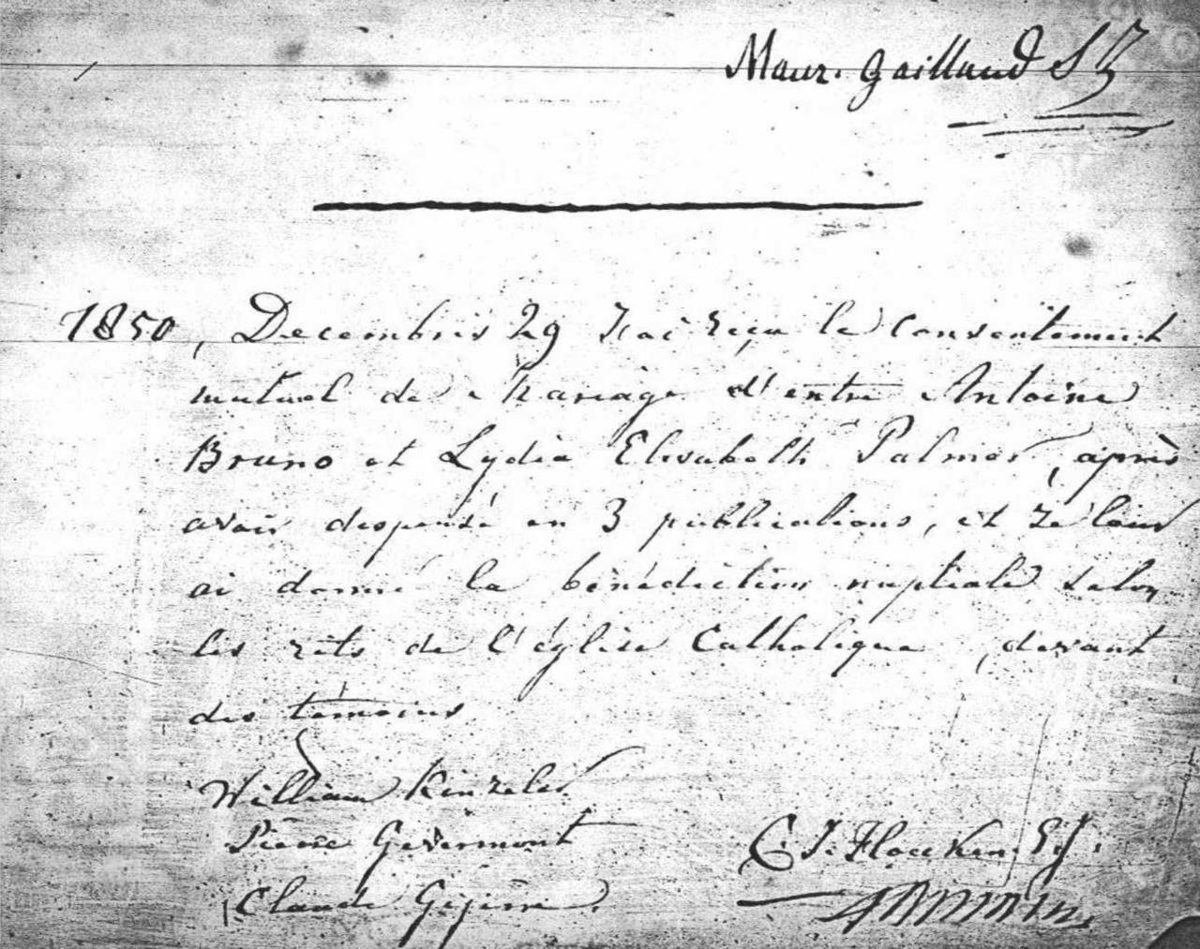 Maur. Gailland SJ
1850, Decembris 29 J'ai reçu le consentement
mutuel de Mariage d'entre Antoine
Bruno et Lydia Elisabeth Palmer, après
avoir dispensé en 3 publications, et je leur
ai donné la bénédiction nuptiale selon
les rits de l'église Catholique, devant
des témoins
William Kinzeler
Pierre
Claude
C. J.